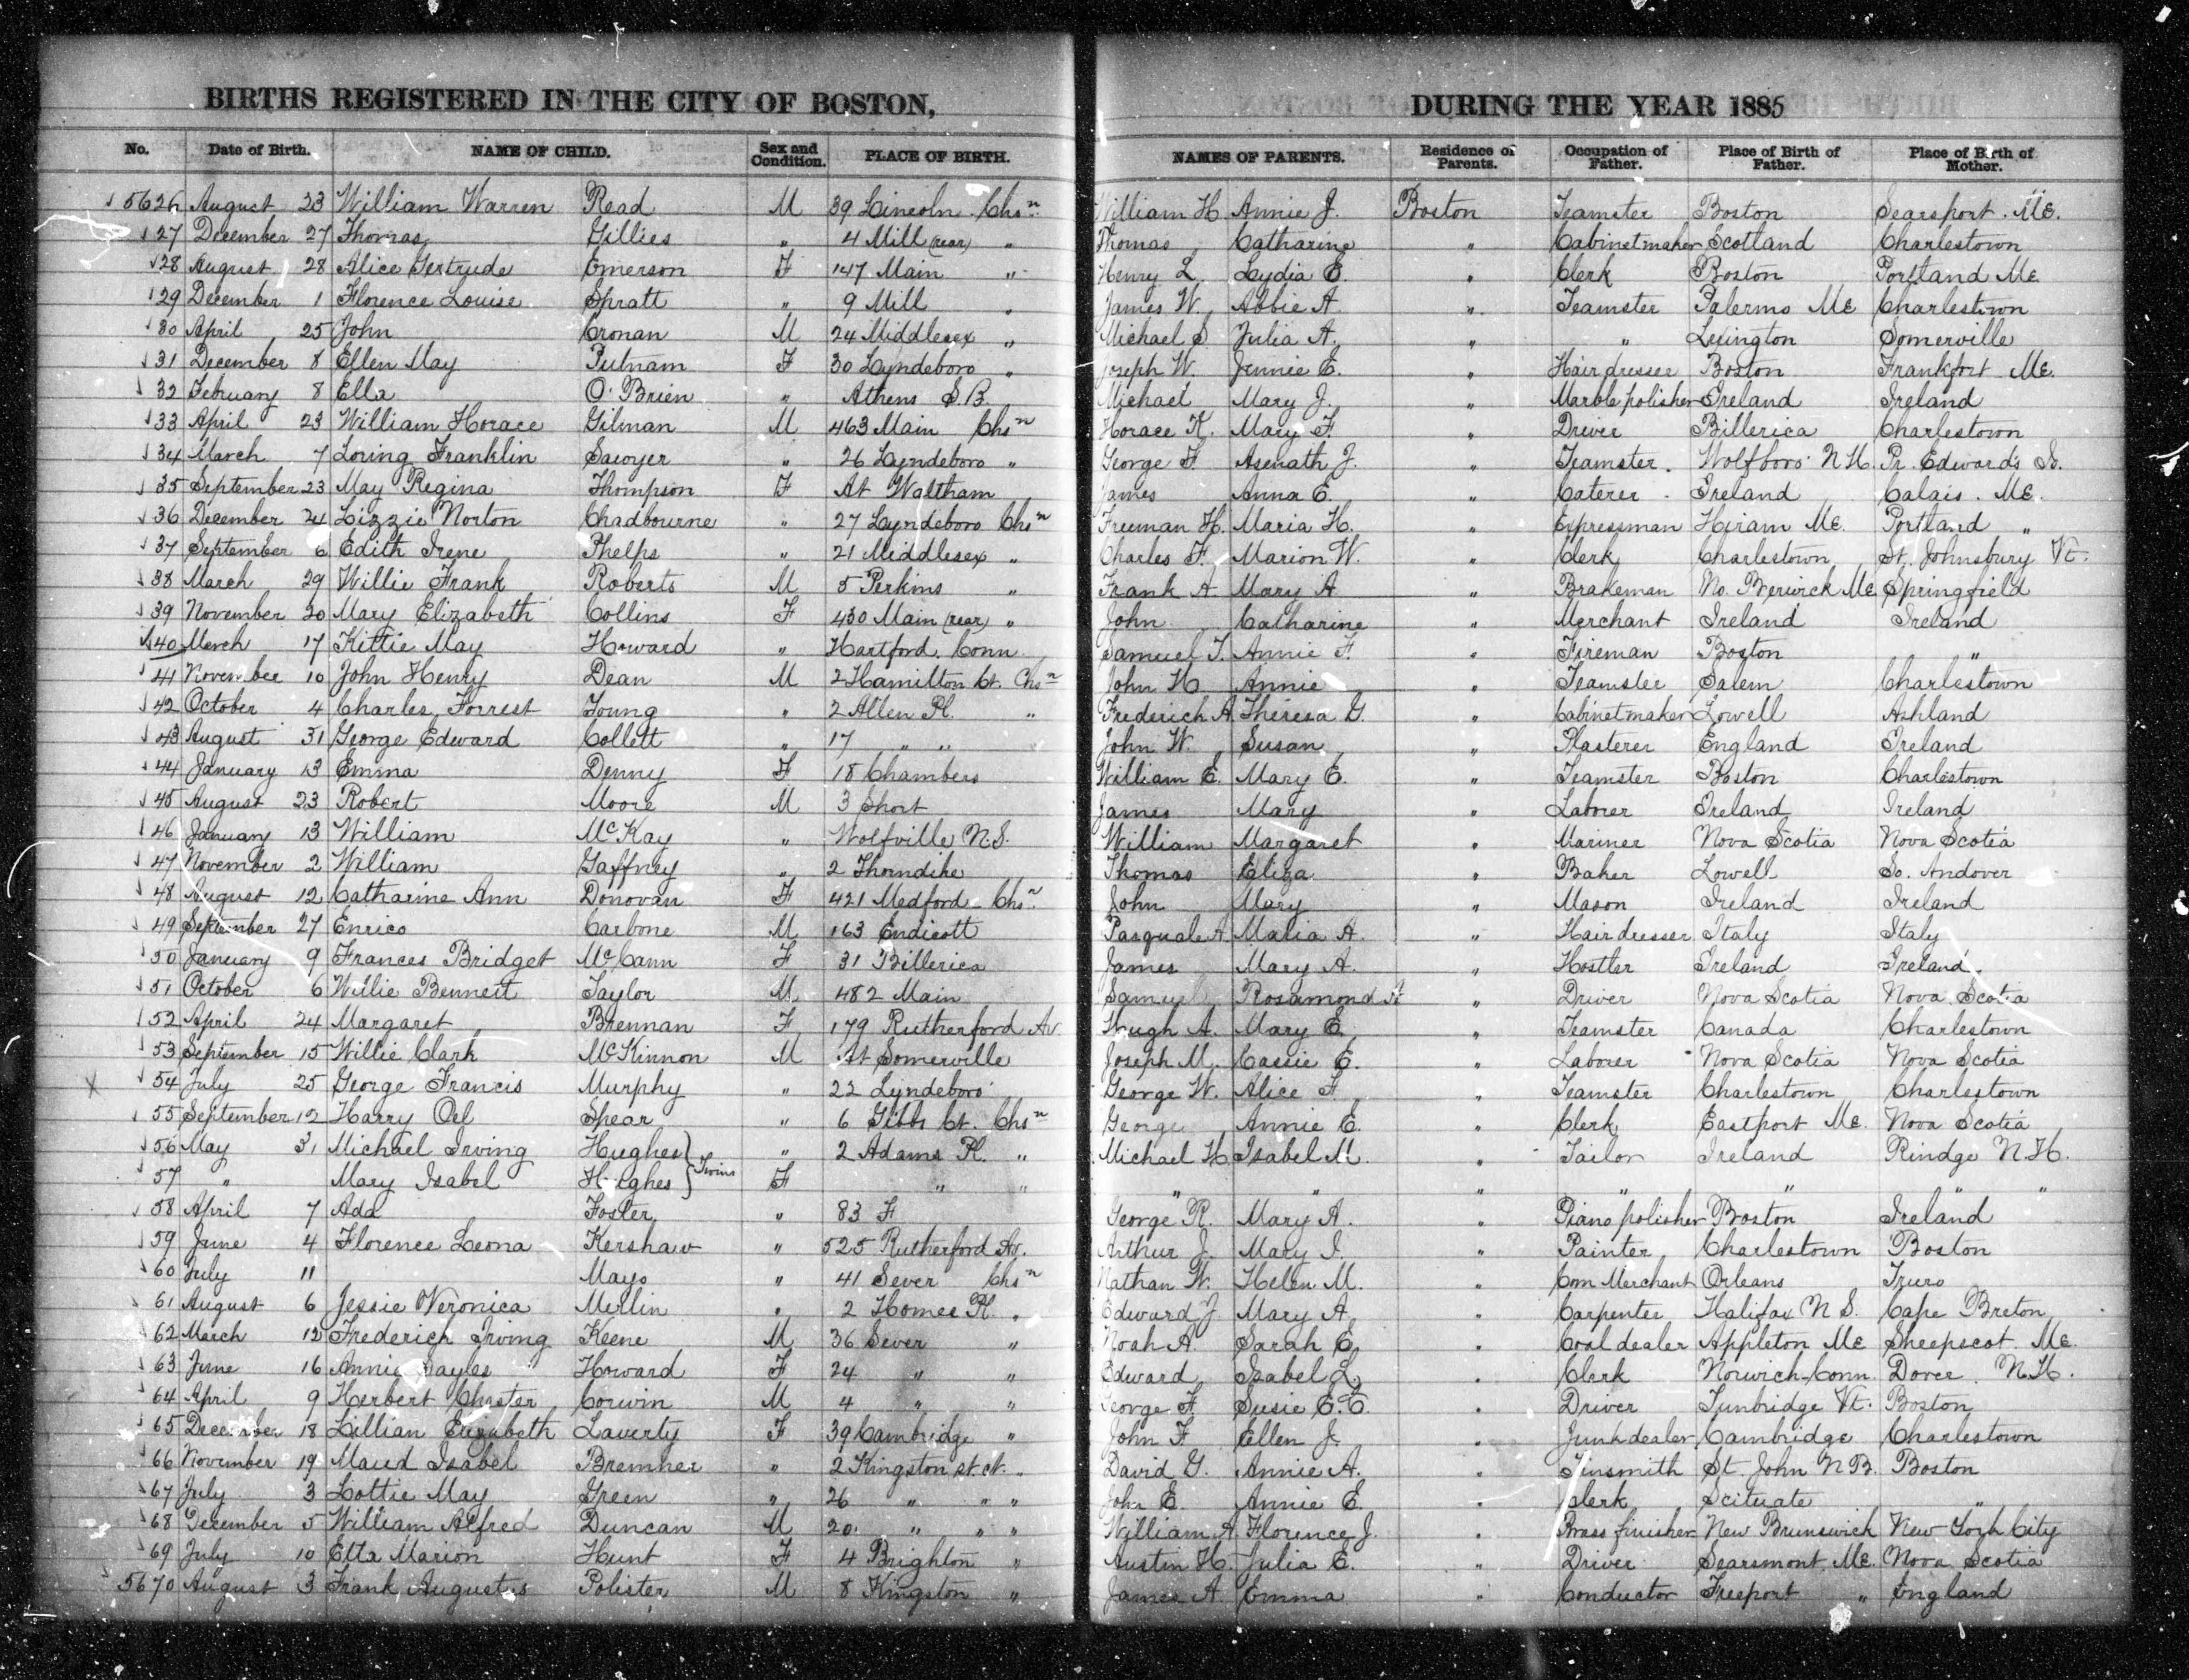 BIRTHS REGISTERED IN THE CITY OF BOSTON, DURING THE YEAR 1885
No. Date of Birth. NAME OF CHILD. Sex and Condition. PLACE OF BIRTH. NAMES OF PARENTS. Residence of Parents. Occupation of Father. Place of Birth of Father. Place of Birth of Mother.
5626 August 23 William Warren Read M 39 Lincoln Chsn William H. Annie J. Boston Teamster Boston Searsport. Me.
27 December 27 Thomas Gillies " 4 Mill (rear) " Thomas Catharine " Cabinetmaker Scotland Charlestown
28 August 28 Alice Gertrude Emerson F 147 Main " Henry L. Lydia E. " Clerk Boston Portland Me.
29 December 1 Florence Louise Spratt " 9 Mill " James W. Abbie A. " Teamster Palermo Me Charlestown
30 April 25 John Cronan M 24 Middlesex " Michael S. Julia A. " " Lexington Somerville
31 December 8 Ellen May Putnam F 30 Lyndeboro " Joseph W. Jennie E. " Hairdresser Boston Frankfort Me.
32 February 8 Ella O'Brien " Athens S.B. Michael Mary J. " Marble polisher Ireland Ireland
33 April 23 William Horace Gilman M 463 Main Chsn Horace K. Mary F. " Driver Billerica Charlestown
34 March 7 Loring Franklin Sawyer " 26 Lyndeboro " George F. Asenath J. " Teamster. Wolfboro N.H. Pr. Edward's Is.
35 September 23 May Regina Thompson F At Waltham James Anna E. " Caterer Ireland Calais. Me.
36 December 24 Lizzie Norton Chadbourne " 27 Lyndeboro Chsn Freeman H. Maria H. " Expressman Hiram Me. Portland "
37 September 6 Edith Irene Phelps " 21 Middlesex " Charles F. Marion W. " Clerk Charlestown St. Johnsbury Vt.
38 March 29 Willie Frank Roberts M 5 Perkins " Frank A Mary A " Brakeman No. Berwick Me. Springfield
39 November 20 Mary Elizabeth Collins F 430 Main (rear) " John Catharine " Merchant Ireland Ireland
40 March 17 Kittie May Howard " Hartford, Conn Samuel T. Annie F. " Fireman Boston "
41 November 10 John Henry Dean M 2 Hamilton Ct. Chsn John H Annie " Teamster Salem Charlestown
42 October 4 Charles Forrest Young " 2 Allen Pl. " Frederick A. Theresa G. " Cabinetmaker Lowell Ashland
43 August 31 George Edward Collett " 17 " " John W. Susan " Plasterer England Ireland
44 January 13 Emma Denny F 18 Chambers William E. Mary E. " Teamster Boston Charlestown
45 August 23 Robert Moore M 3 Short James Mary " Laborer Ireland Ireland
46 January 13 William McKay " Wolfville N.S. William Margaret " Mariner Nova Scotia Nova Scotia
47 November 2 William Gaffney " 2 Thorndike Thomas Eliza " Baker Lowell So. Andover
48 August 12 Catharine Ann Donovan F 421 Medford Chsn John Mary " Mason Ireland Ireland
49 September 27 Enrico Carbone M 163 Endicott Pasquale A. Maria A. " Hairdresser Italy Italy
50 January 9 Frances Bridget McCann F 31 Billerica James Mary A. " Hostler Ireland Ireland
51 October 6 Willie Bennett Taylor M 482 Main Samuel Rosamond A " Driver Nova Scotia Nova Scotia
52 April 24 Margaret Brennan F 179 Rutherford Av. Hugh A. Mary E. " Teamster Canada Charlestown
53 September 15 Willie Clark McKinnon M At Somerville Joseph M. Cassie E. " Laborer Nova Scotia Nova Scotia
54 July 25 George Francis Murphy " 22 Lyndeboro George W. Alice F. " Teamster Charlestown Charlestown
55 September 12 Harry Oel Spear " 6 Gibbs Ct. Chsn George Annie E. " Clerk Eastport Me. Nova Scotia
56 May 31 Michael Irving Hughes } Twins " 2 Adams Pl. " Michael H. Isabel M. " Tailor Ireland Rindge N.H.
57 " Mary Isabel Hughes } F " " " " " " " " "
58 April 7 Ada Foster " 83 F George R. Mary A. " Piano polisher Boston Ireland
59 June 4 Florence Leona Kershaw " 525 Rutherford Av. Arthur J. Mary I. " Painter Charlestown Boston
60 July 11 Mayo " 41 Sever Chsn Nathan W. Helen M. " Com Merchant Orleans Truro
61 August 6 Jessie Veronica Merlin " 2 Homer Pl. " Edward J. Mary A. " Carpenter Halifax N S. Cape Breton
62 March 12 Frederick Irving Keene M 36 Sever " Noah A. Sarah E. " Coal dealer Appleton Me Sheepscot Me.
63 June 16 Annie Sayles Howard F 24 " " Edward Isabel L. " Clerk Norwich Conn. Dover N.H.
64 April 9 Herbert Chester Corwin M 4 " " George F. Susie E.C. " Driver Tunbridge Vt. Boston
65 December 18 Lillian Elizabeth Laverty F 39 Cambridge " John F. Ellen J. " Junk dealer Cambridge Charlestown
66 November 19 Maud Isabel Bremner " 2 Kingston st. ct. " David G. Annie A. " Tinsmith St. John N B. Boston
67 July 3 Lottie May Green " 26 " " " John E. Annie E. " Clerk Scituate "
68 December 5 William Alfred Duncan M 20 " " " William A Florence J. " Brass finisher New Brunswick New York City
69 July 10 Etta Marion Hunt F 4 Brighton " Austin H. Julia E. " Driver Searsmont Me. Nova Scotia
5670 August 3 Frank Augustus Polister M 8 Kingston " James A Emma " Conductor Freeport " England